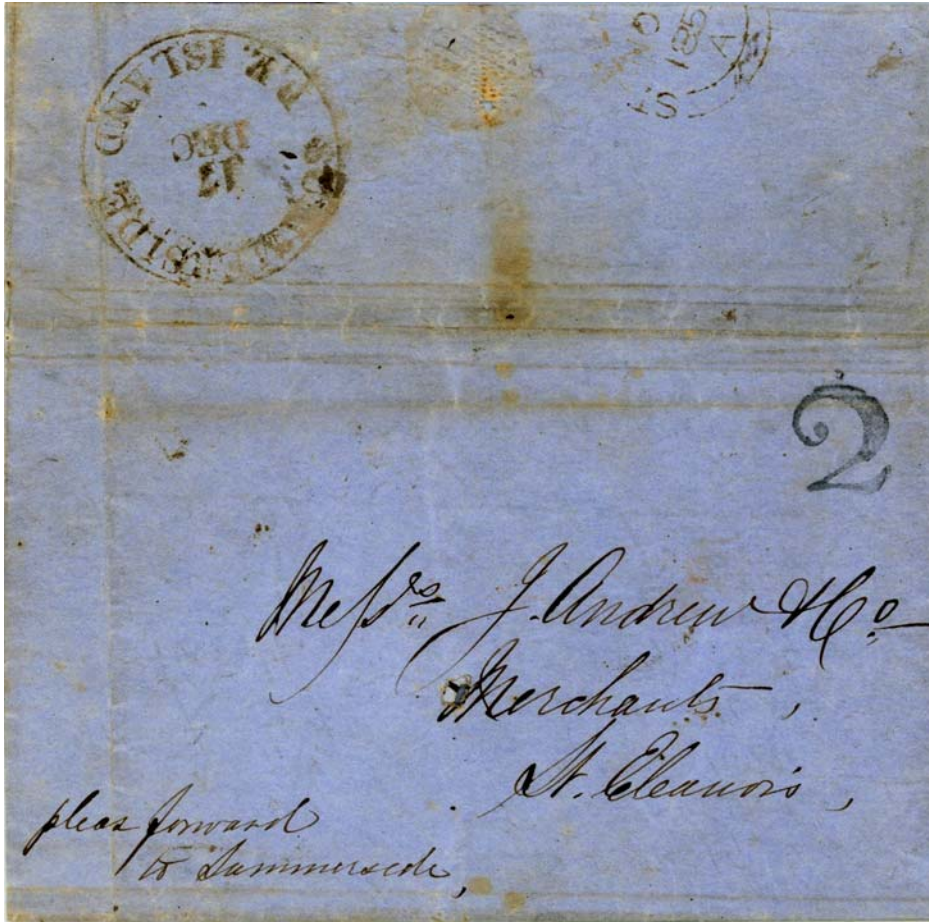 SUMMERSIDE
P.K. ISLAND
17
DEC
185
A
2
Messrs J. Andrew & Co
Merchants,
St. Eleanors,
pleas forward
to Summersede,